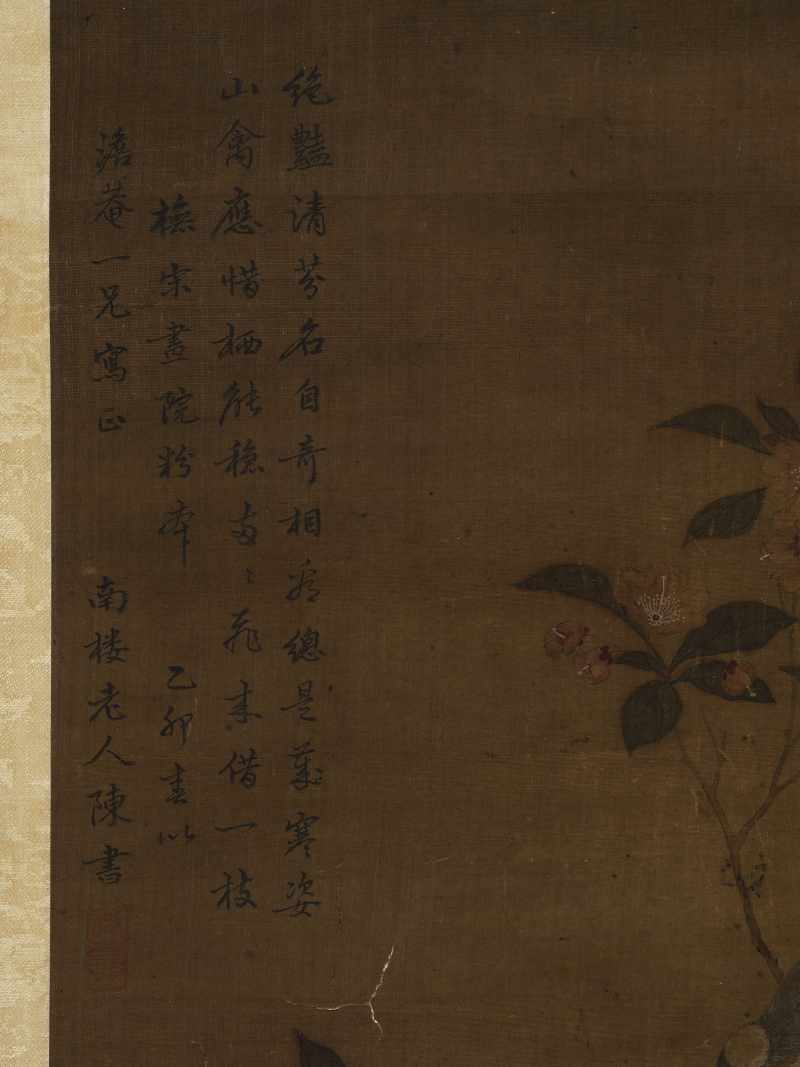 絶豔清芬名自奇相看總是歲寒姿
山禽應惜栖能穩両〻飛来借一枝
橅宋畫院粉本　乙卯春以
澹菴一兄寫正　南楼老人陳書